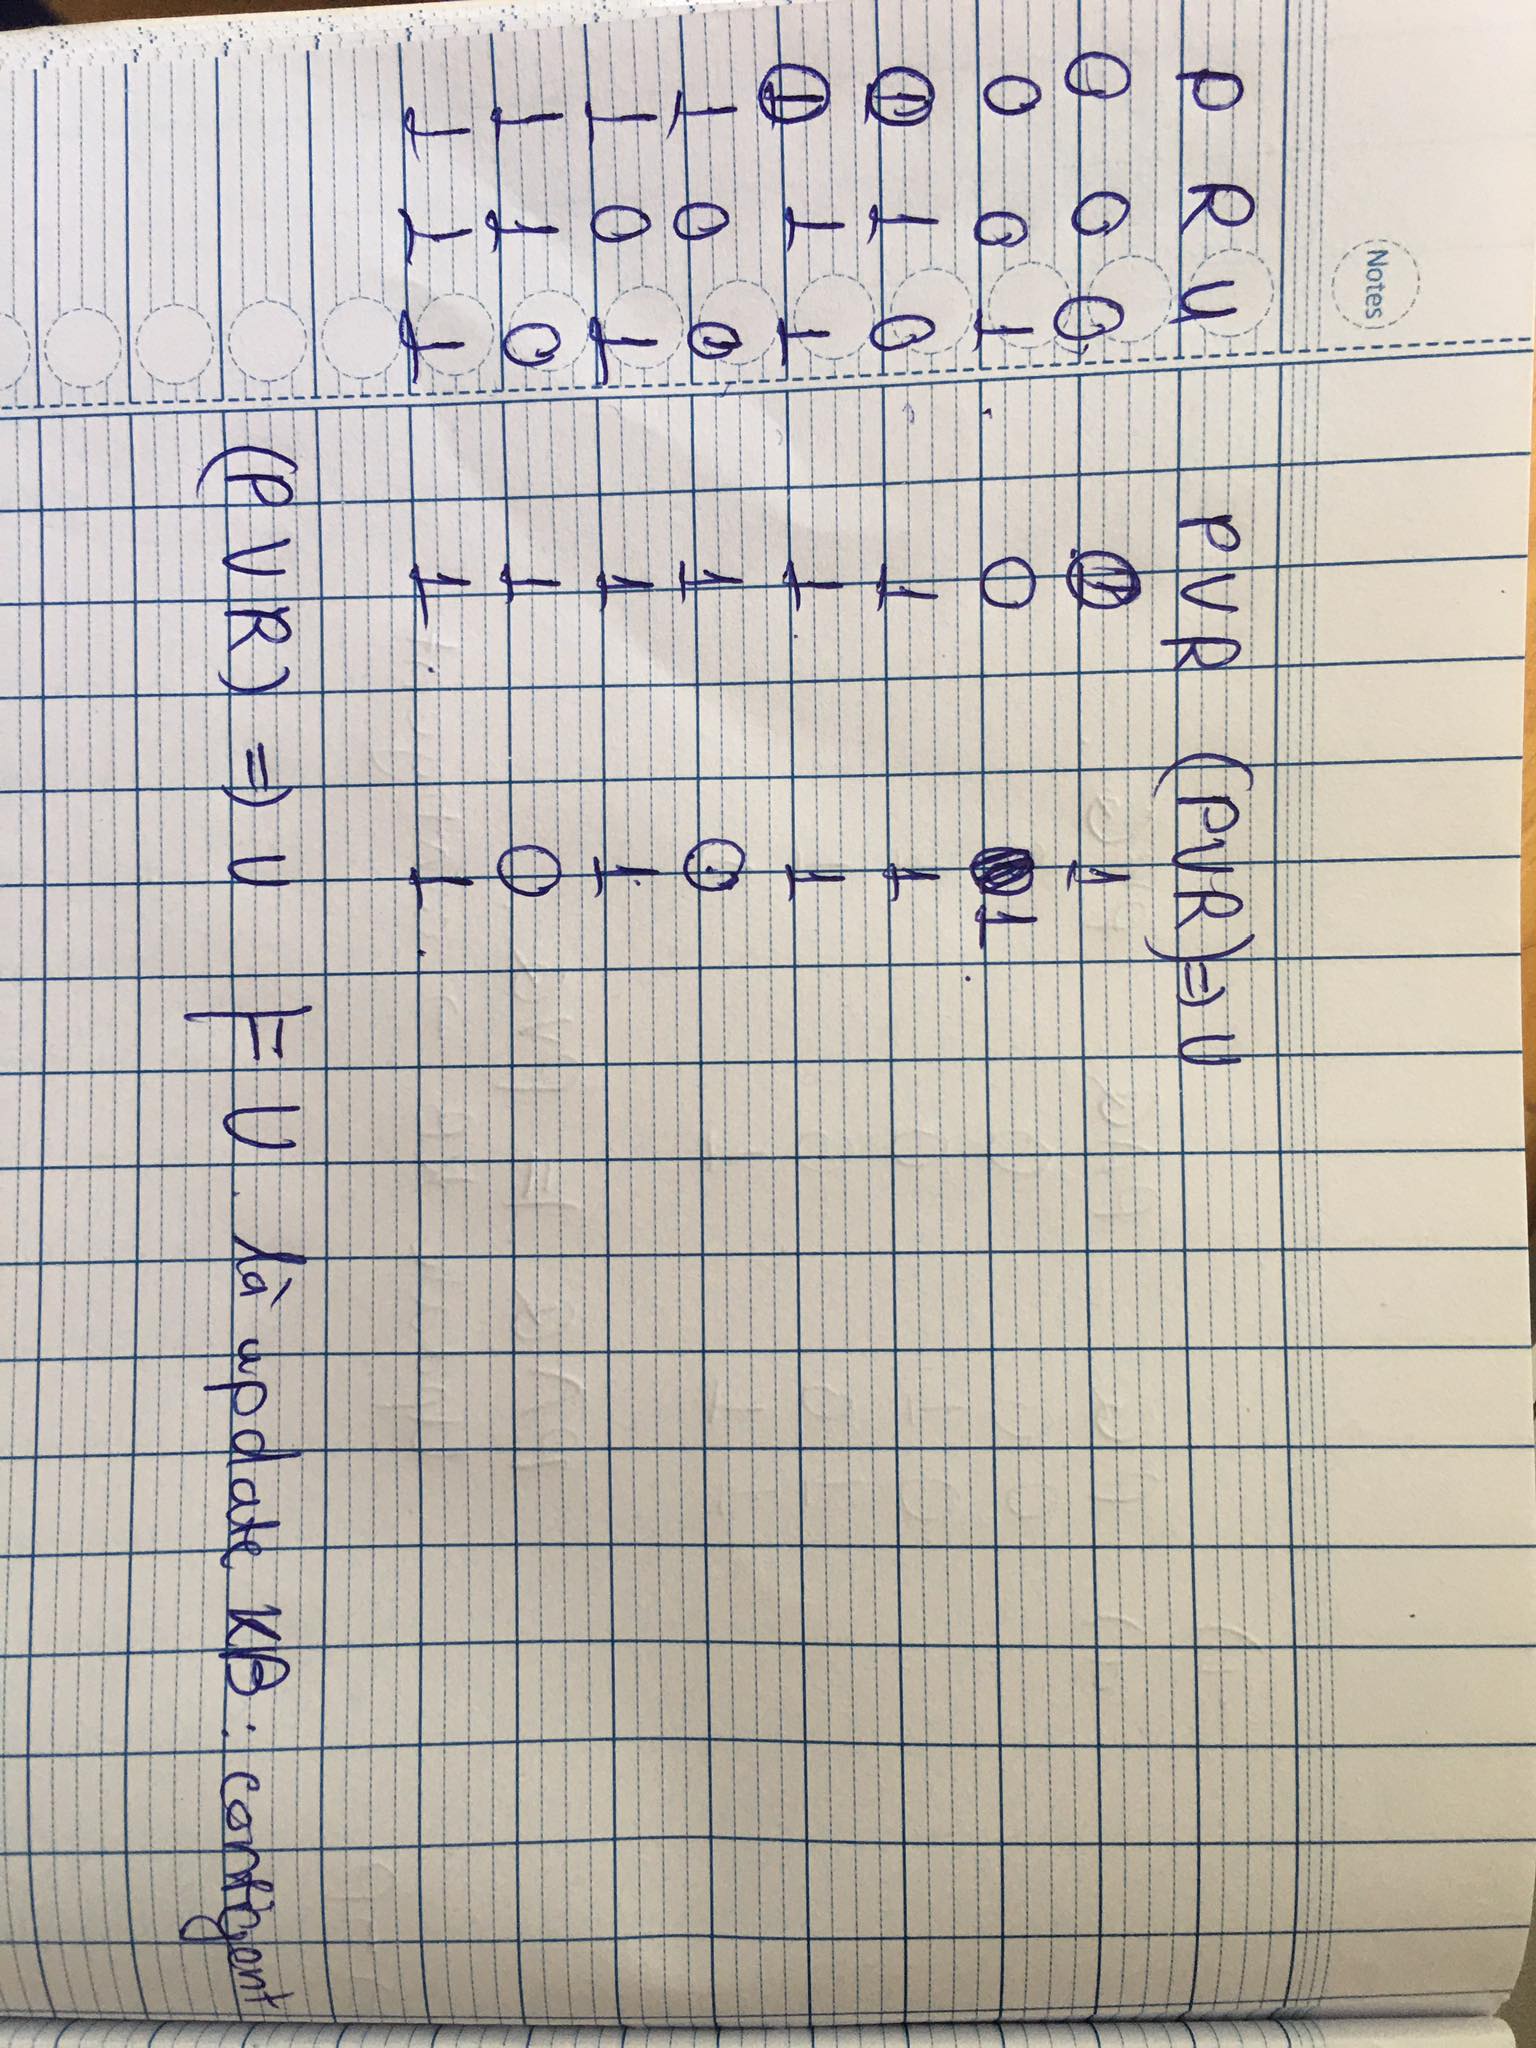 Notes
P R U PVR (PVR)=>U
0 0 0 0 1
0 0 1 0 1
0 1 0 1 1
0 1 1 1 1
1 0 0 1 0
1 0 1 1 1
1 1 0 1 0
1 1 1 1 1
(PVR) => U ⊨ U là update KB: contigent